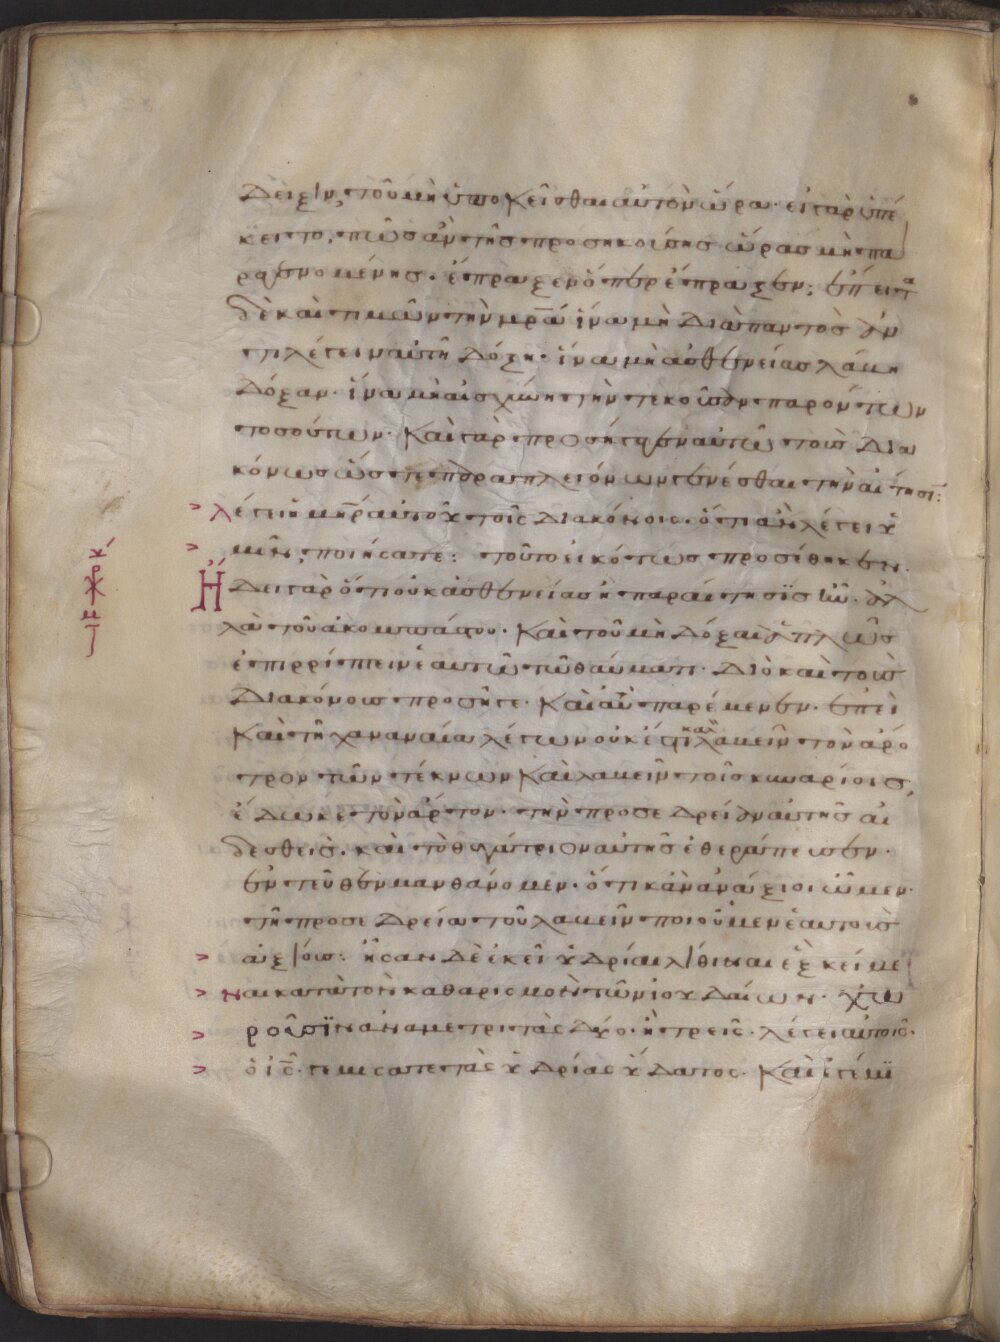 δειξιν, τοῦ μὴ ὑποκεῖσθαι αὐτὸν ὥρα· εἰ γὰρ ὑπέ
κειτο, πῶς ἂν τῆς προσηκούσης ὥρας μὴ πα
ραγενομένης. ἔπραξεν ὅπερ ἔπραξεν; ἔπειτα
δὲ καὶ τιμῶν τὴν μρ̅α ἵνα μὴ διαπαντὸς ἀν
τιλέγειν αὐτῇ δόξῃ· ἵνα μὴ ἀσθενείας λάβῃ
δόξαν· ἵνα μὴ αἰσχύνῃ τὴν τεκοῦσαν παρόντων
τοσούτων· καὶ γὰρ προσήγαγεν αὐτῶ τοὺς δια
κόνους ὥστε παρα πλειόνων γενέσθαι τὴν αἴτησι:
λέγει ἡ μη̅ρ αὐτοῦ τοῖς διακόνοις· ὅτι ἂν λέγει ὑ
μῖν, ποιήσατε: τοῦτο εἰκότως προσέθηκεν.
Ἤδει γὰρ ὅτι οὐκ ἀσθενείας ἡ παραίτησϊς ἦν. ἀλ
λὰ τοῦ ἀκομπάστου· καὶ τοῦ μὴ δόξαι ἁπλῶς
ἐπιρρίπτειν ἑαυτῶ τῶ θαύματι· διὸ καὶ τοὺς
διακόνους προσῆγε· καὶ αὐ παρέμενεν· ἐπεὶ
καὶ τῇ χαναναία λέγων οὐκ ἔστι καλὸν λαβεῖν τὸν ἄρ
τον τῶν τέκνων καὶ λαβεῖν τοῖς κυναρίοις,
ἔδωκε τὸν ἄρτον· τὴν προσεδρείαν αὐτῆς αἰ
δεσθεὶς. καὶ τὸ θυγάτριον αὐτῆς ἐθεράπευσεν·
ἐντεῦθεν μανθάνομεν· ὅτι κἂν ἀνάξιοι ὦμεν·
τῇ προσεδρεία τοῦ λαβεῖν ποιοῦμεν ἑαυτοὺς
ἀξίους: ἦσαν δὲ ἐκεῖ ὑδρίαι λίθιναι ἓξ κείμε
ναι κατὰ τὸν καθαρισμὸν τῶν ἰουδαίων· χω
ροῦσϊν ἀνα μετριτὰς δύο· ἢ τρεῖς· λέγει αὐτοῖς·
ὁ ις̅· γεμίσατε τὰς ὑδρίας ὕδατος· καὶ ἐγέμϊ